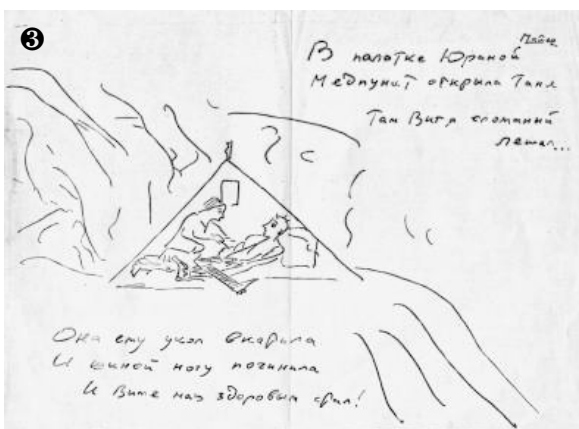 3
В палатке Юриной
Медпункт открыла Таня
Там Витя сломанный
лежал...
Она ему укол вкатила
И шиной ногу починила
И Витя наш здоровым стал!